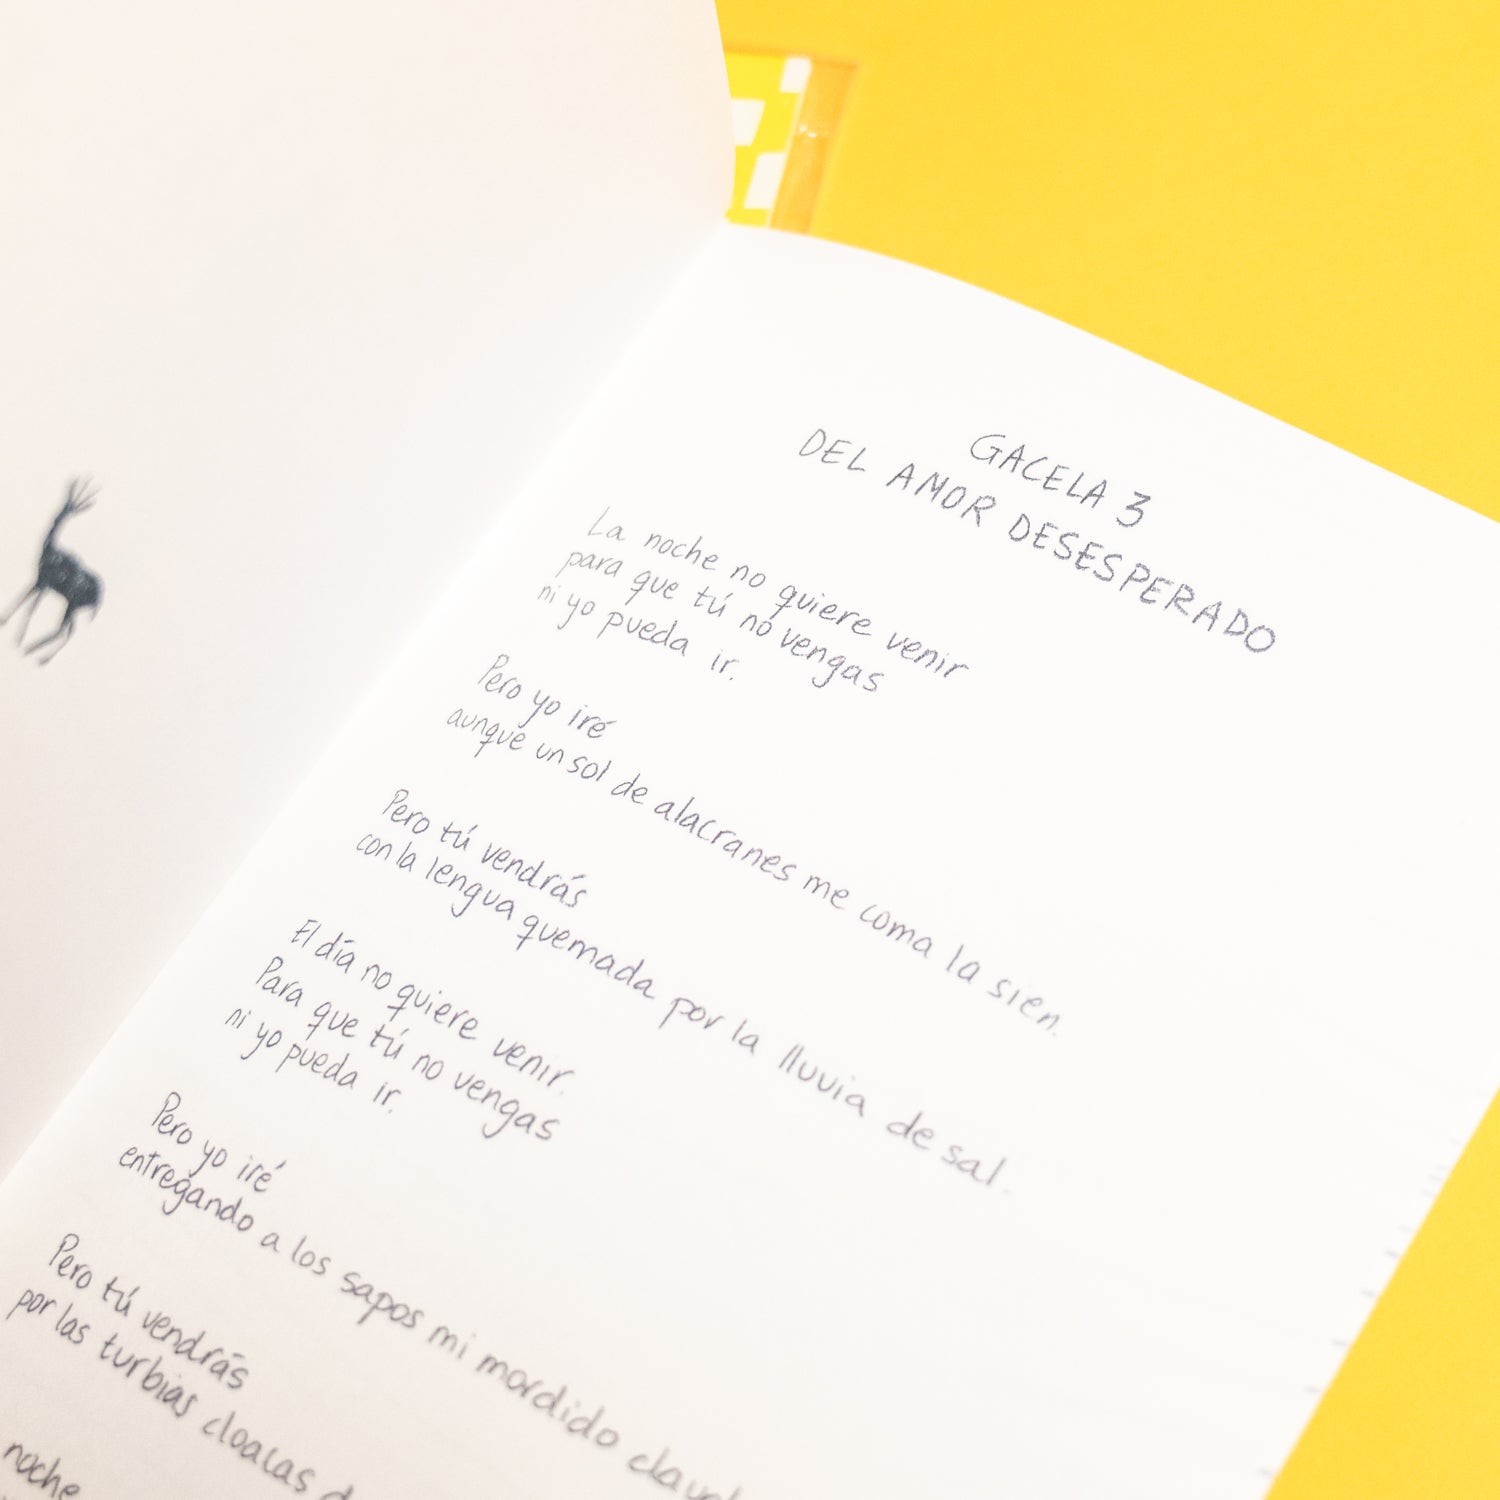 GACELA 3
DEL AMOR DESESPERADO
La noche no quiere venir
para que tú no vengas
ni yo pueda ir.
Pero yo iré
aunque un sol de alacranes me coma la sien.
Pero tú vendrás
con la lengua quemada por la lluvia de sal.
El día no quiere venir.
Para que tú no vengas
ni yo pueda ir.
Pero yo iré
entregando a los sapos mi mordido
Pero tú vendrás
por las turbias cloacas
noche